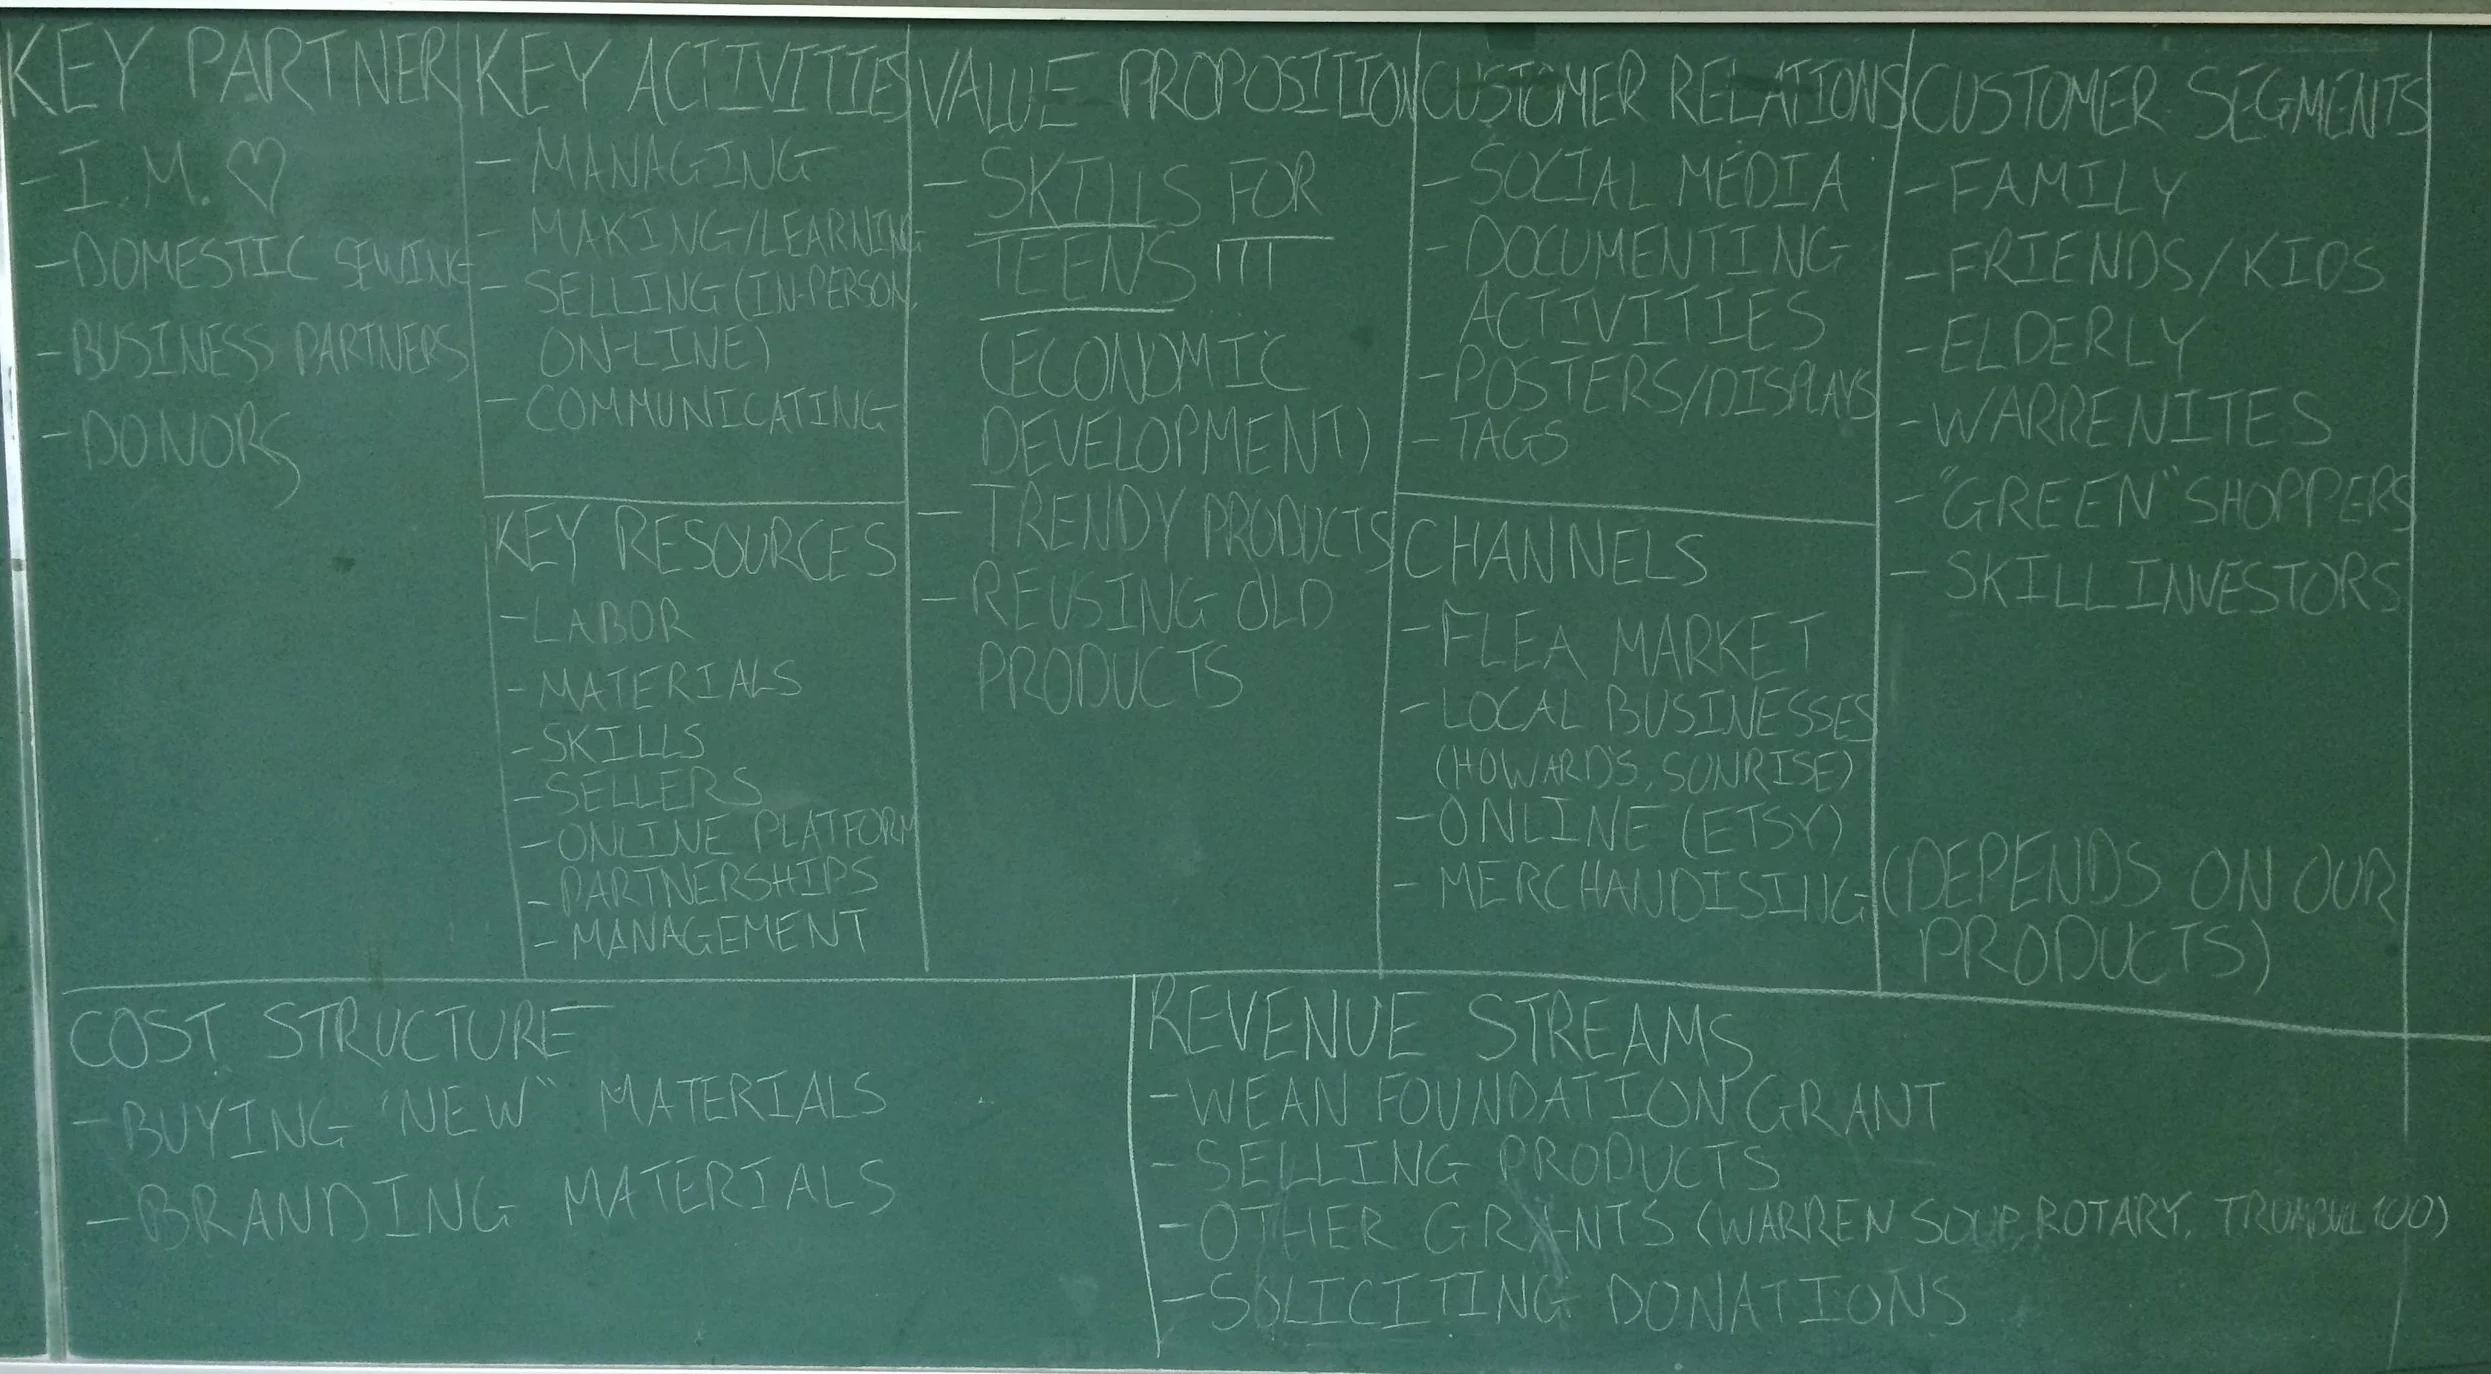 KEY PARTNER
- I.M. ♡
- DOMESTIC SEWING
- BUSINESS PARTNERS
- DONORS
KEY ACTIVITIES
- MANAGING
- MAKING/LEARNING
- SELLING (IN-PERSON,
ON-LINE)
- COMMUNICATING
KEY RESOURCES
- LABOR
- MATERIALS
- SKILLS
- SELLERS
- ONLINE PLATFORM
- PARTNERSHIPS
- MANAGEMENT
VALUE PROPOSITION
- SKILLS FOR
TEENS !!!
(ECONOMIC
DEVELOPMENT)
- TRENDY PRODUCTS
- REUSING OLD
PRODUCTS
CUSTOMER RELATIONS
- SOCIAL MEDIA
- DOCUMENTING
ACTIVITIES
- POSTERS/DISPLAYS
- TAGS
CHANNELS
- FLEA MARKET
- LOCAL BUSINESSES
(HOWARD'S, SONRISE)
- ONLINE (ETSY)
- MERCHANDISING
CUSTOMER SEGMENTS
- FAMILY
- FRIENDS/KIDS
- ELDERLY
- WARRENITES
- "GREEN" SHOPPERS
- SKILL INVESTORS
(DEPENDS ON OUR
PRODUCTS)
COST STRUCTURE
- BUYING "NEW" MATERIALS
- BRANDING MATERIALS
REVENUE STREAMS
- WEAN FOUNDATION GRANT
- SELLING PRODUCTS
- OTHER GRANTS (WARREN SOUP, ROTARY, TRUMBULL 100)
- SOLICITING DONATIONS